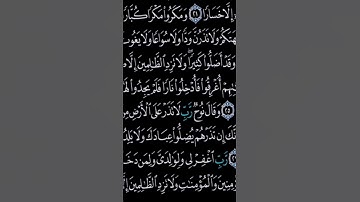 إِلَّا خَسَارًا ٢١ وَمَكَرُوا۟ مَكْرًا كُبَّارًا
وَلَا تَذَرُنَّ وَدًّا وَلَا سُوَاعًا وَلَا يَغُوثَ
وَقَدْ أَضَلُّوا۟ كَثِيرًا وَلَا تَزِدِ ٱلظَّٰلِمِينَ إِلَّا
أُغْرِقُوا۟ فَأُدْخِلُوا۟ نَارًا فَلَمْ يَجِدُوا۟
٢٥ وَقَالَ نُوحٌ رَّبِّ لَا تَذَرْ عَلَى ٱلْأَرْضِ
إِن تَذَرْهُمْ يُضِلُّوا۟ عِبَادَكَ وَلَا
رَّبِّ ٱغْفِرْ لِى وَلِوَٰلِدَىَّ وَلِمَن
وَٱلْمُؤْمِنَٰتِ وَلَا تَزِدِ ٱلظَّٰلِمِينَ إِلَّا